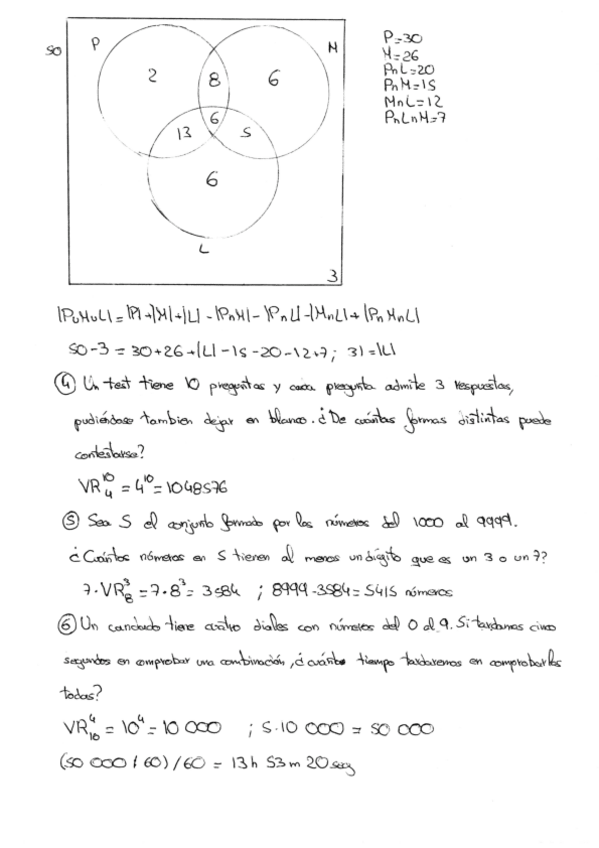 50
P
M
2
8
6
6
13
5
6
L
3
P=30
M=26
P∩L=20
P∩M=15
M∩L=12
P∩L∩M=7
|P∪M∪L| = |P|+|M|+|L| - |P∩M| - |P∩L| - |M∩L| + |P∩M∩L|
50-3 = 30+26+|L|-15-20-12+7 ; 31=|L|
④ Un test tiene 10 preguntas y cada pregunta admite 3 respuestas,
pudiéndose tambien dejar en blanco. ¿De cuántas formas distintas puede
contestarse?
VR₄¹⁰ = 4¹⁰ = 1048576
⑤ Sea S el conjunto formado por los números del 1000 al 9999.
¿Cuántos números en S tienen al menos un dígito que es un 3 o un 7?
7·VR₈³ = 7·8³ = 3584 ; 8999-3584 = 5415 números
⑥ Un candado tiene cuatro diales con números del 0 al 9. Si tardamos cinco
segundos en comprobar una combinación, ¿cuánto tiempo tardaremos en comprobarlas
todas?
VR₁₀⁴ = 10⁴ = 10 000 ; 5·10 000 = 50 000
(50 000 / 60) / 60 = 13h 53m 20seg